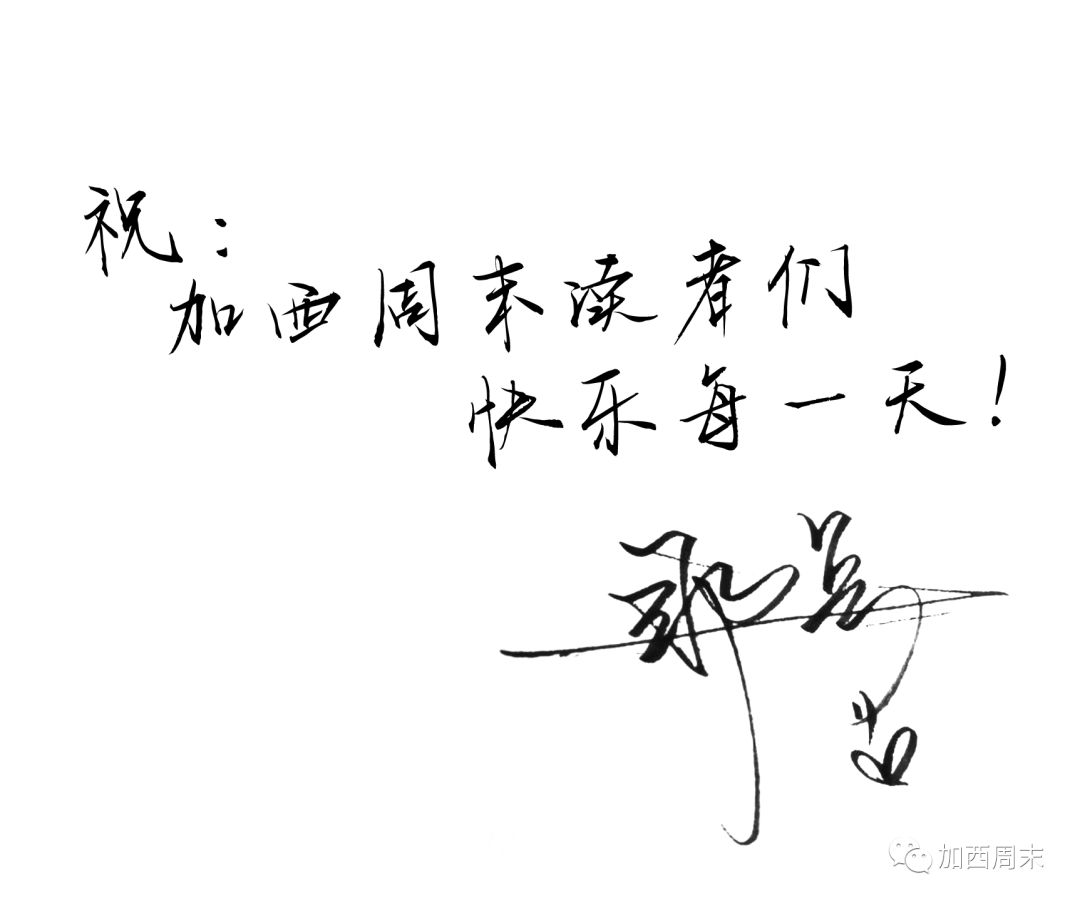 祝：
加西周末读者们
快乐每一天！
加西周末